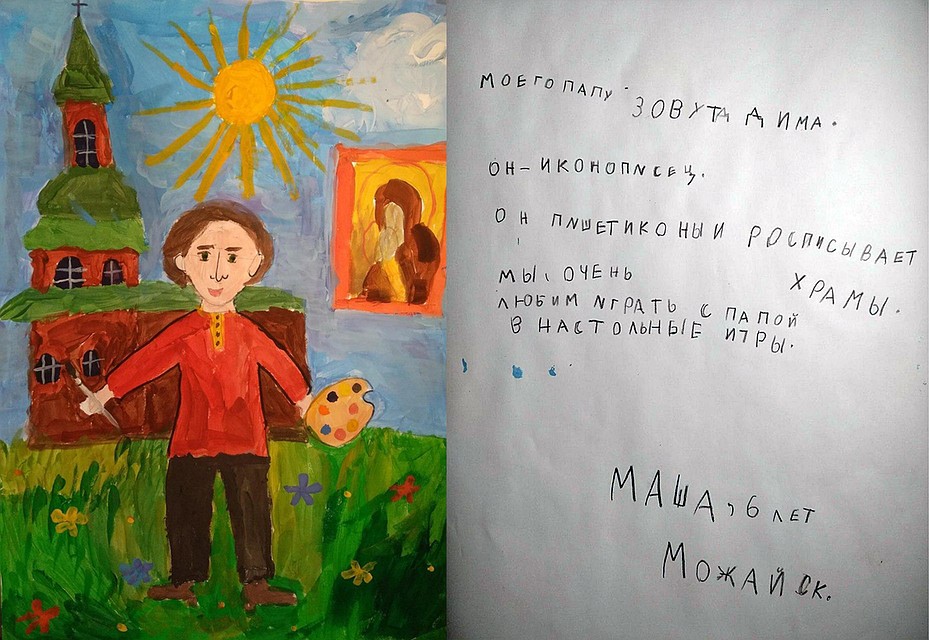 МОЕГО ПАПУ ЗОВУТ ДИМА.
ОН-ИКОНОПИСЕЦ.
ОН ПИШЕТ ИКОНЫ И РОСПИСЫВАЕТ
ХРАМЫ.
МЫ, ОЧЕНЬ
ЛЮБИМ ИГРАТЬ С ПАПОЙ
В НАСТОЛЬНЫЕ ИГРЫ.
МАША, 6 ЛЕТ
МОЖАЙСК.